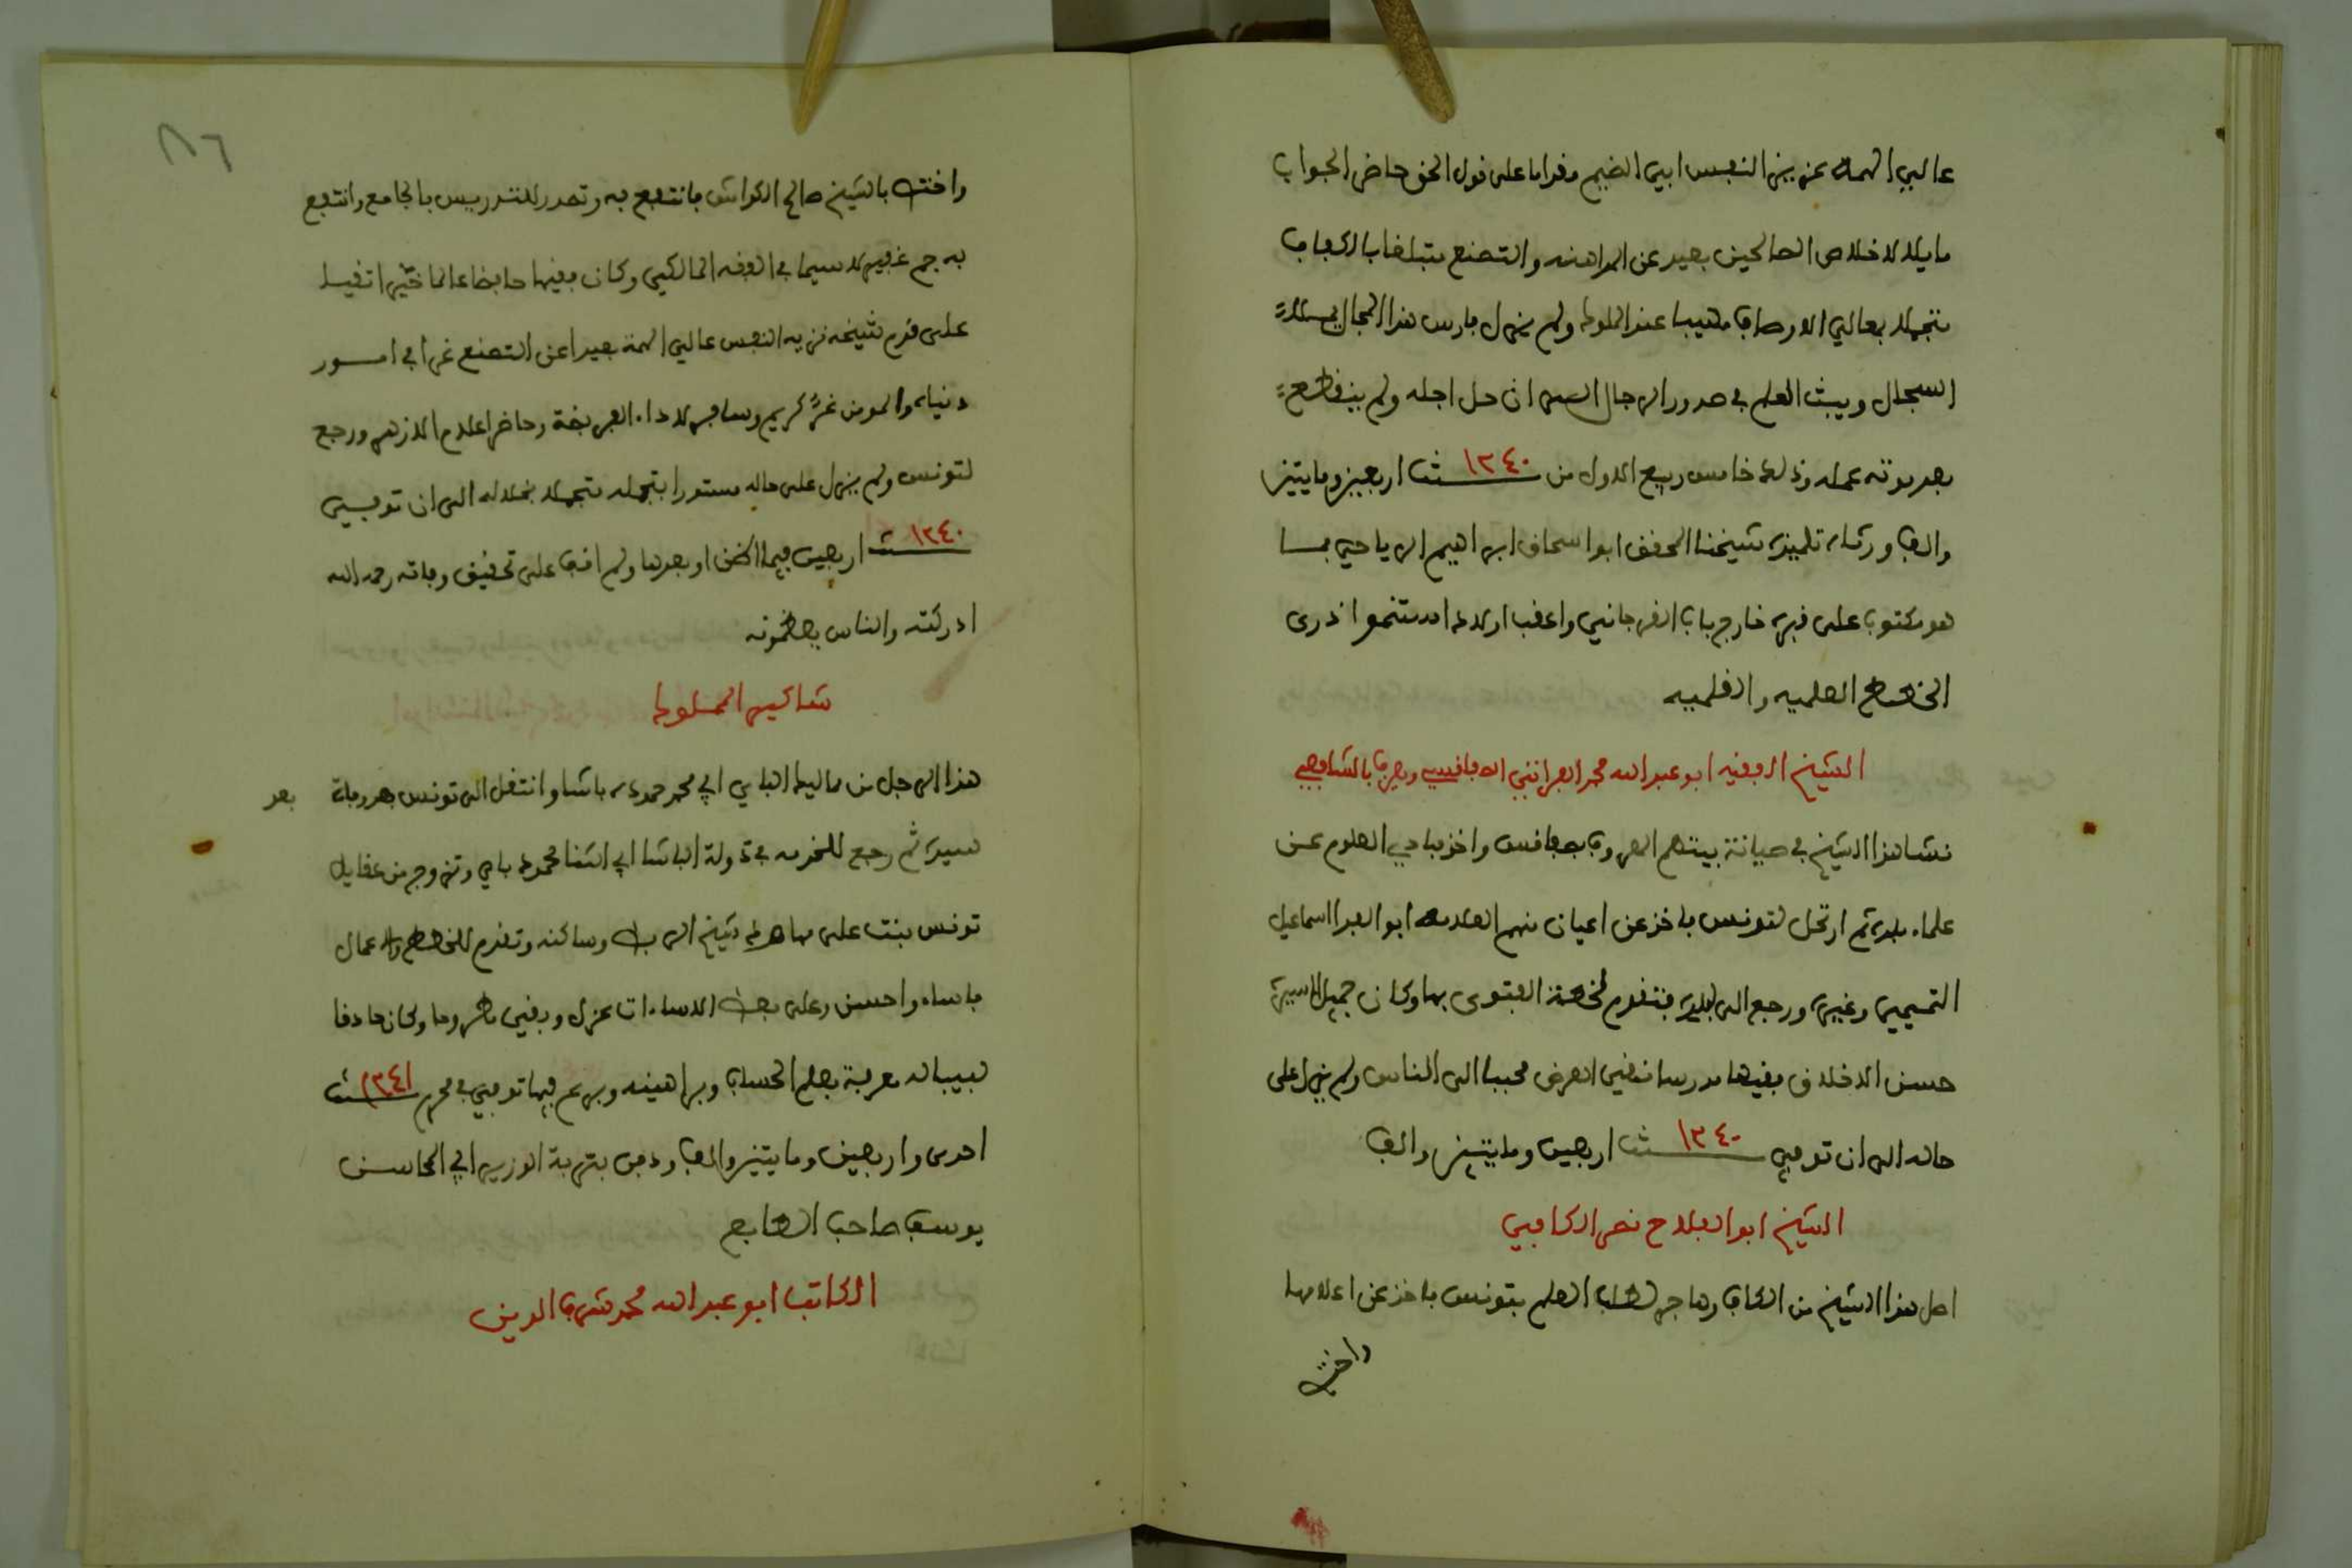 عالي الهمة عزيز النفس ابي الضيم مقداما على قول الحق حاضر الجواب
مايلا لاخلاص الصالحين بعيد عن المداهنه والتصنع متبلغا بالكفاف
متجملا بمعالي الاوصاف مهيبا عند الملوك ولم يزل فارس هذا المجال يملا
السجال ويبث العلم في صدور الرجال الى ان حل اجله ولم ينقطع
بعد موته عمله وذلك خامس ربيع الاول من سنة ١٢٤٠ اربعين ومايتين
والف ورثاه تلميذه شيخنا المحقق ابو اسحاق ابراهيم الرياحي بما
هو مكتوب على قبره خارج باب الفرجاني واعقب اولادا استنموا ذرى
الخطط العلميه والقلميه
الشيخ الفقيه ابو عبد الله محمد الفراتي الصفاقسي ويعرف بالشافعي
نشا هذا الشيخ في صيانة بيتهم المعروف بصفاقس واخذ مبادي العلوم عن
علماء بلده ثم ارتحل لتونس فاخذ عن اعيان منهم العلامه ابو الفدا اسماعيل
التميمي وغيره ورجع الى بلده فتقدم لخطة الفتوى بها وكان جميل السيرة
حسن الاخلاق فقيها مدرسا نقي العرض محببا الى الناس ولم يزل على
حاله الى ان توفي سنة ١٢٤٠ اربعين ومايتين والف
الشيخ ابو الفلاح نصر الكافي
اصل هذا الشيخ من الكاف وهاجر لطلب العلم بتونس فاخذ عن اعلامها
واختص
٨٦
واختص بالشيخ صالح الكواش فانتفع به وتصدر للتدريس بالجامع وانتفع
به جم غفير لا سيما في الفقه المالكي وكان فقيها حافظا عالما خيرا تقيا
على قدم شيخه نزيه النفس عالي الهمة بعيدا عن التصنع غرا في امور
دنياه والمومن غر كريم وسافر لاداء الفريضة وحاضر اعلام الازهر ورجع
لتونس ولم يزل على حاله مستورا بتجمله متجملا بخلاله الى ان توفي
سنة ١٢٤٠ اربعين فيما اظن او بعدها ولم اقف على تحقيق وفاته رحمه الله
ادركته والناس يعظمونه
شاكير المملوك
هذا الرجل من مماليك الباي ابي محمد حموده باشا وانتقل الى تونس بعد وفاة بعد
سيده ثم رجع للخدمه في دولة الباشا ابي الثنا محمود باي وتزوج من عقايل
تونس بنت على مهاود شيخ الربط وساكنه وتقدم للخطط والاعمال
فاساء واحسن وعلى بعض الاساءات عزل وبقي مطروحا وكان حاذقا
لبيبا له معرفة بعلم الحساب وبراهينه وبرع فيها توفي في محرم سنة ١٢٤١
احدى واربعين ومايتين والف ودفن بتربة الوزير ابي المحاسن
يوسف صاحب الطابع
الكاتب ابو عبد الله محمد شرف الدين